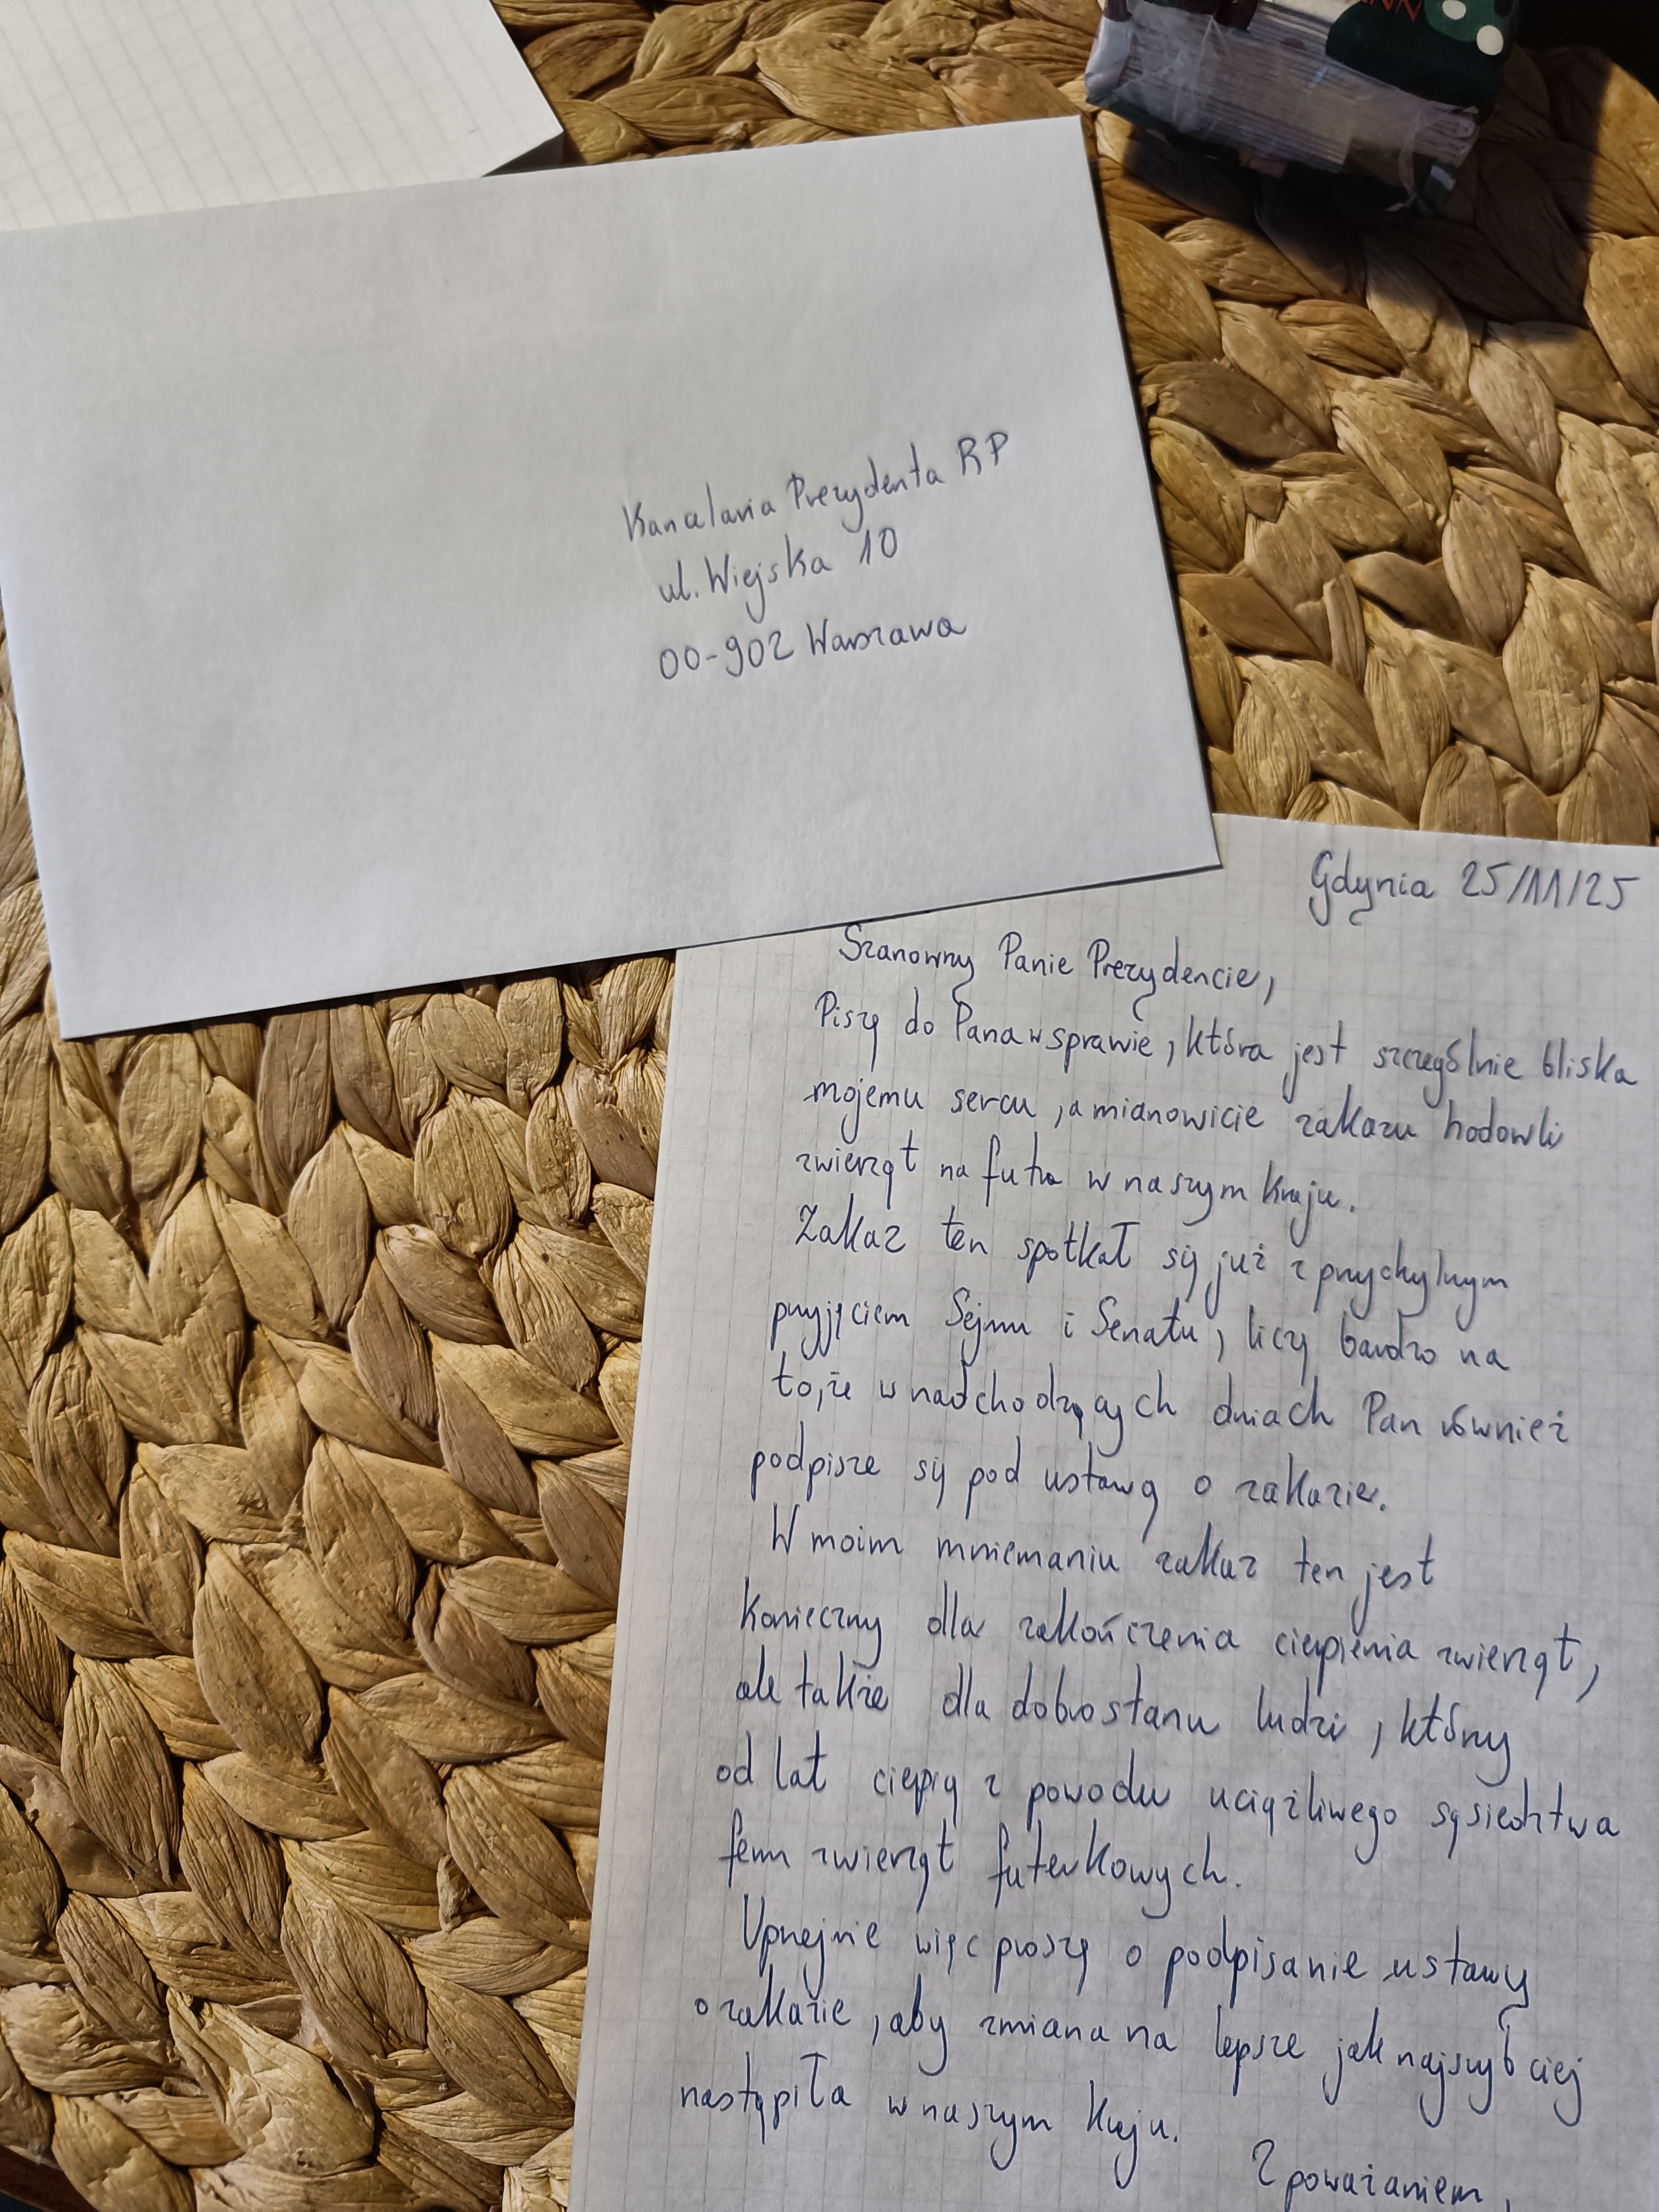 Kancelaria Prezydenta RP
ul. Wiejska 10
00-902 Warszawa
Gdynia 25/11/25
Szanowny Panie Prezydencie,
Piszę do Pana w sprawie, która jest szczególnie bliska
mojemu sercu, a mianowicie zakazu hodowli
zwierząt na futra w naszym kraju.
Zakaz ten spotkał się już z przychylnym
przyjęciem Sejmu i Senatu, liczę bardzo na
to, że w nadchodzących dniach Pan również
podpisze się pod ustawą o zakazie.
W moim mniemaniu zakaz ten jest
konieczny dla zakończenia cierpienia zwierząt,
ale także dla dobrostanu ludzi, którzy
od lat cierpią z powodu uciążliwego sąsiedztwa
ferm zwierząt futerkowych.
Uprzejmie więc proszę o podpisanie ustawy
o zakazie, aby zmiana na lepsze jak najszybciej
nastąpiła w naszym kraju.
Z poważaniem,